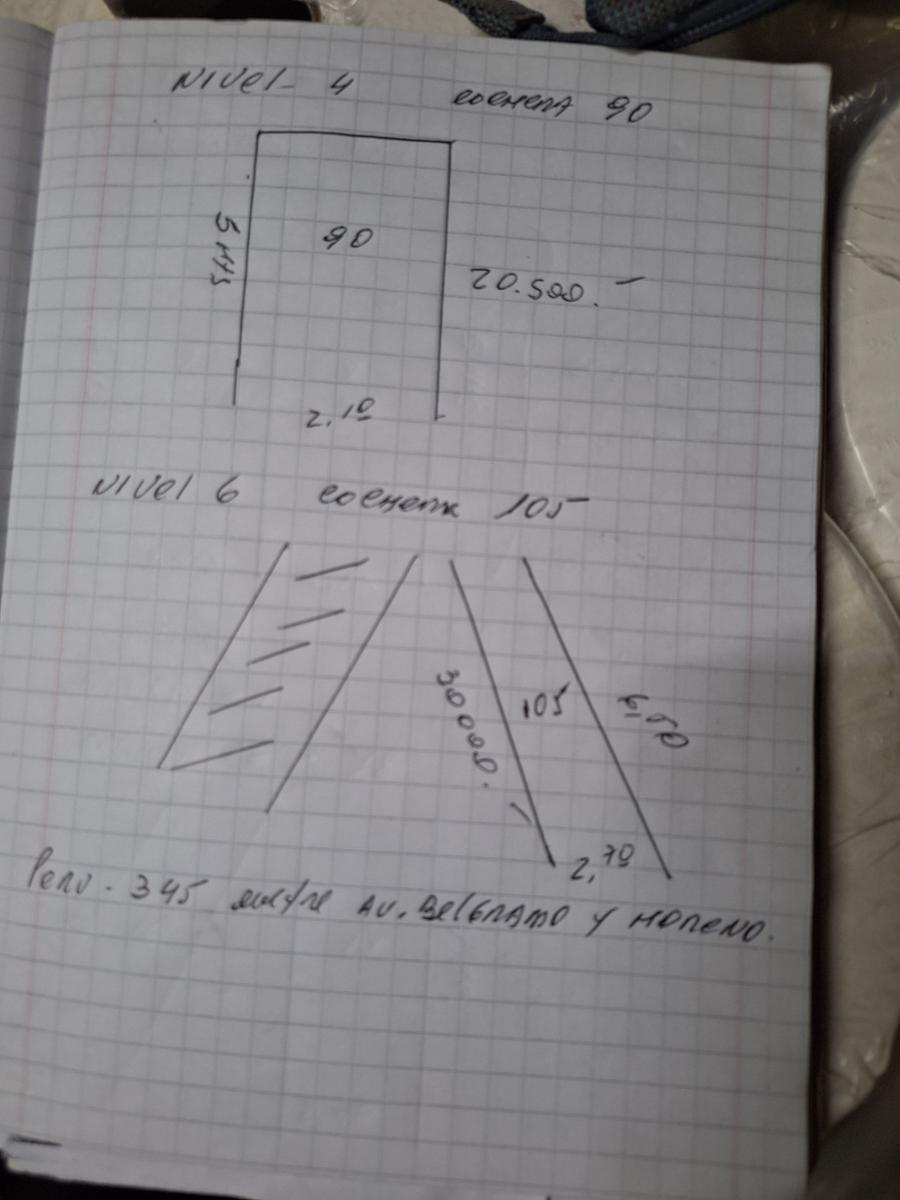 NIVEL 4 COCHERA 90
5 MTS
90
20.500.-
2,10
NIVEL 6 COCHERA 105
30000.-
105
6,50
2,70
PERU. 345 entre AV. BELGRANO Y MORENO.